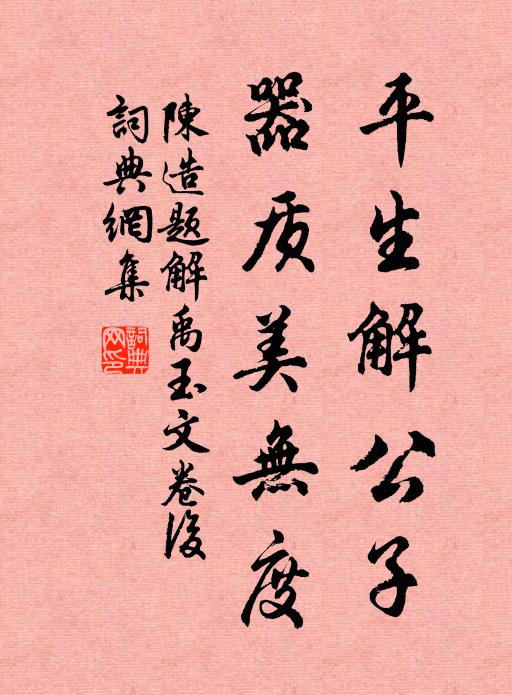 平生解公子
器质美無度
陳造題解禹玉文卷後
詞典網集
詞典網印